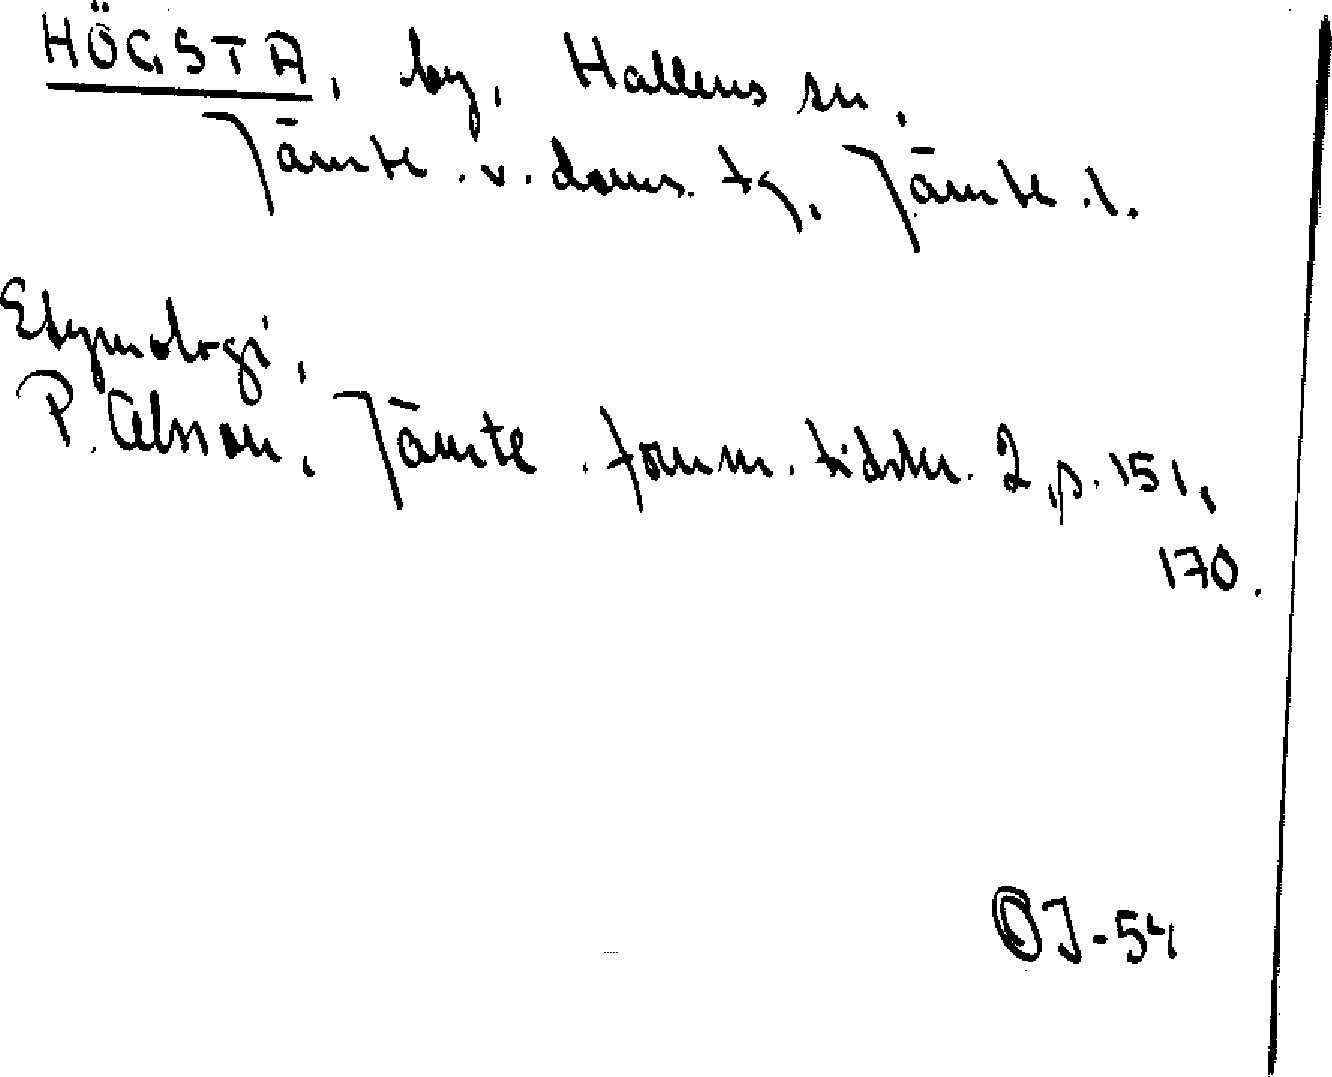 HÖGSTA, by, Hallens sn,
Jämtl. v. doms. tg, Jämtl. l.
Etymologi,
P. Olsson, Jämtl. fornm. tidskr. 2, p. 151,
170.
OJ-54